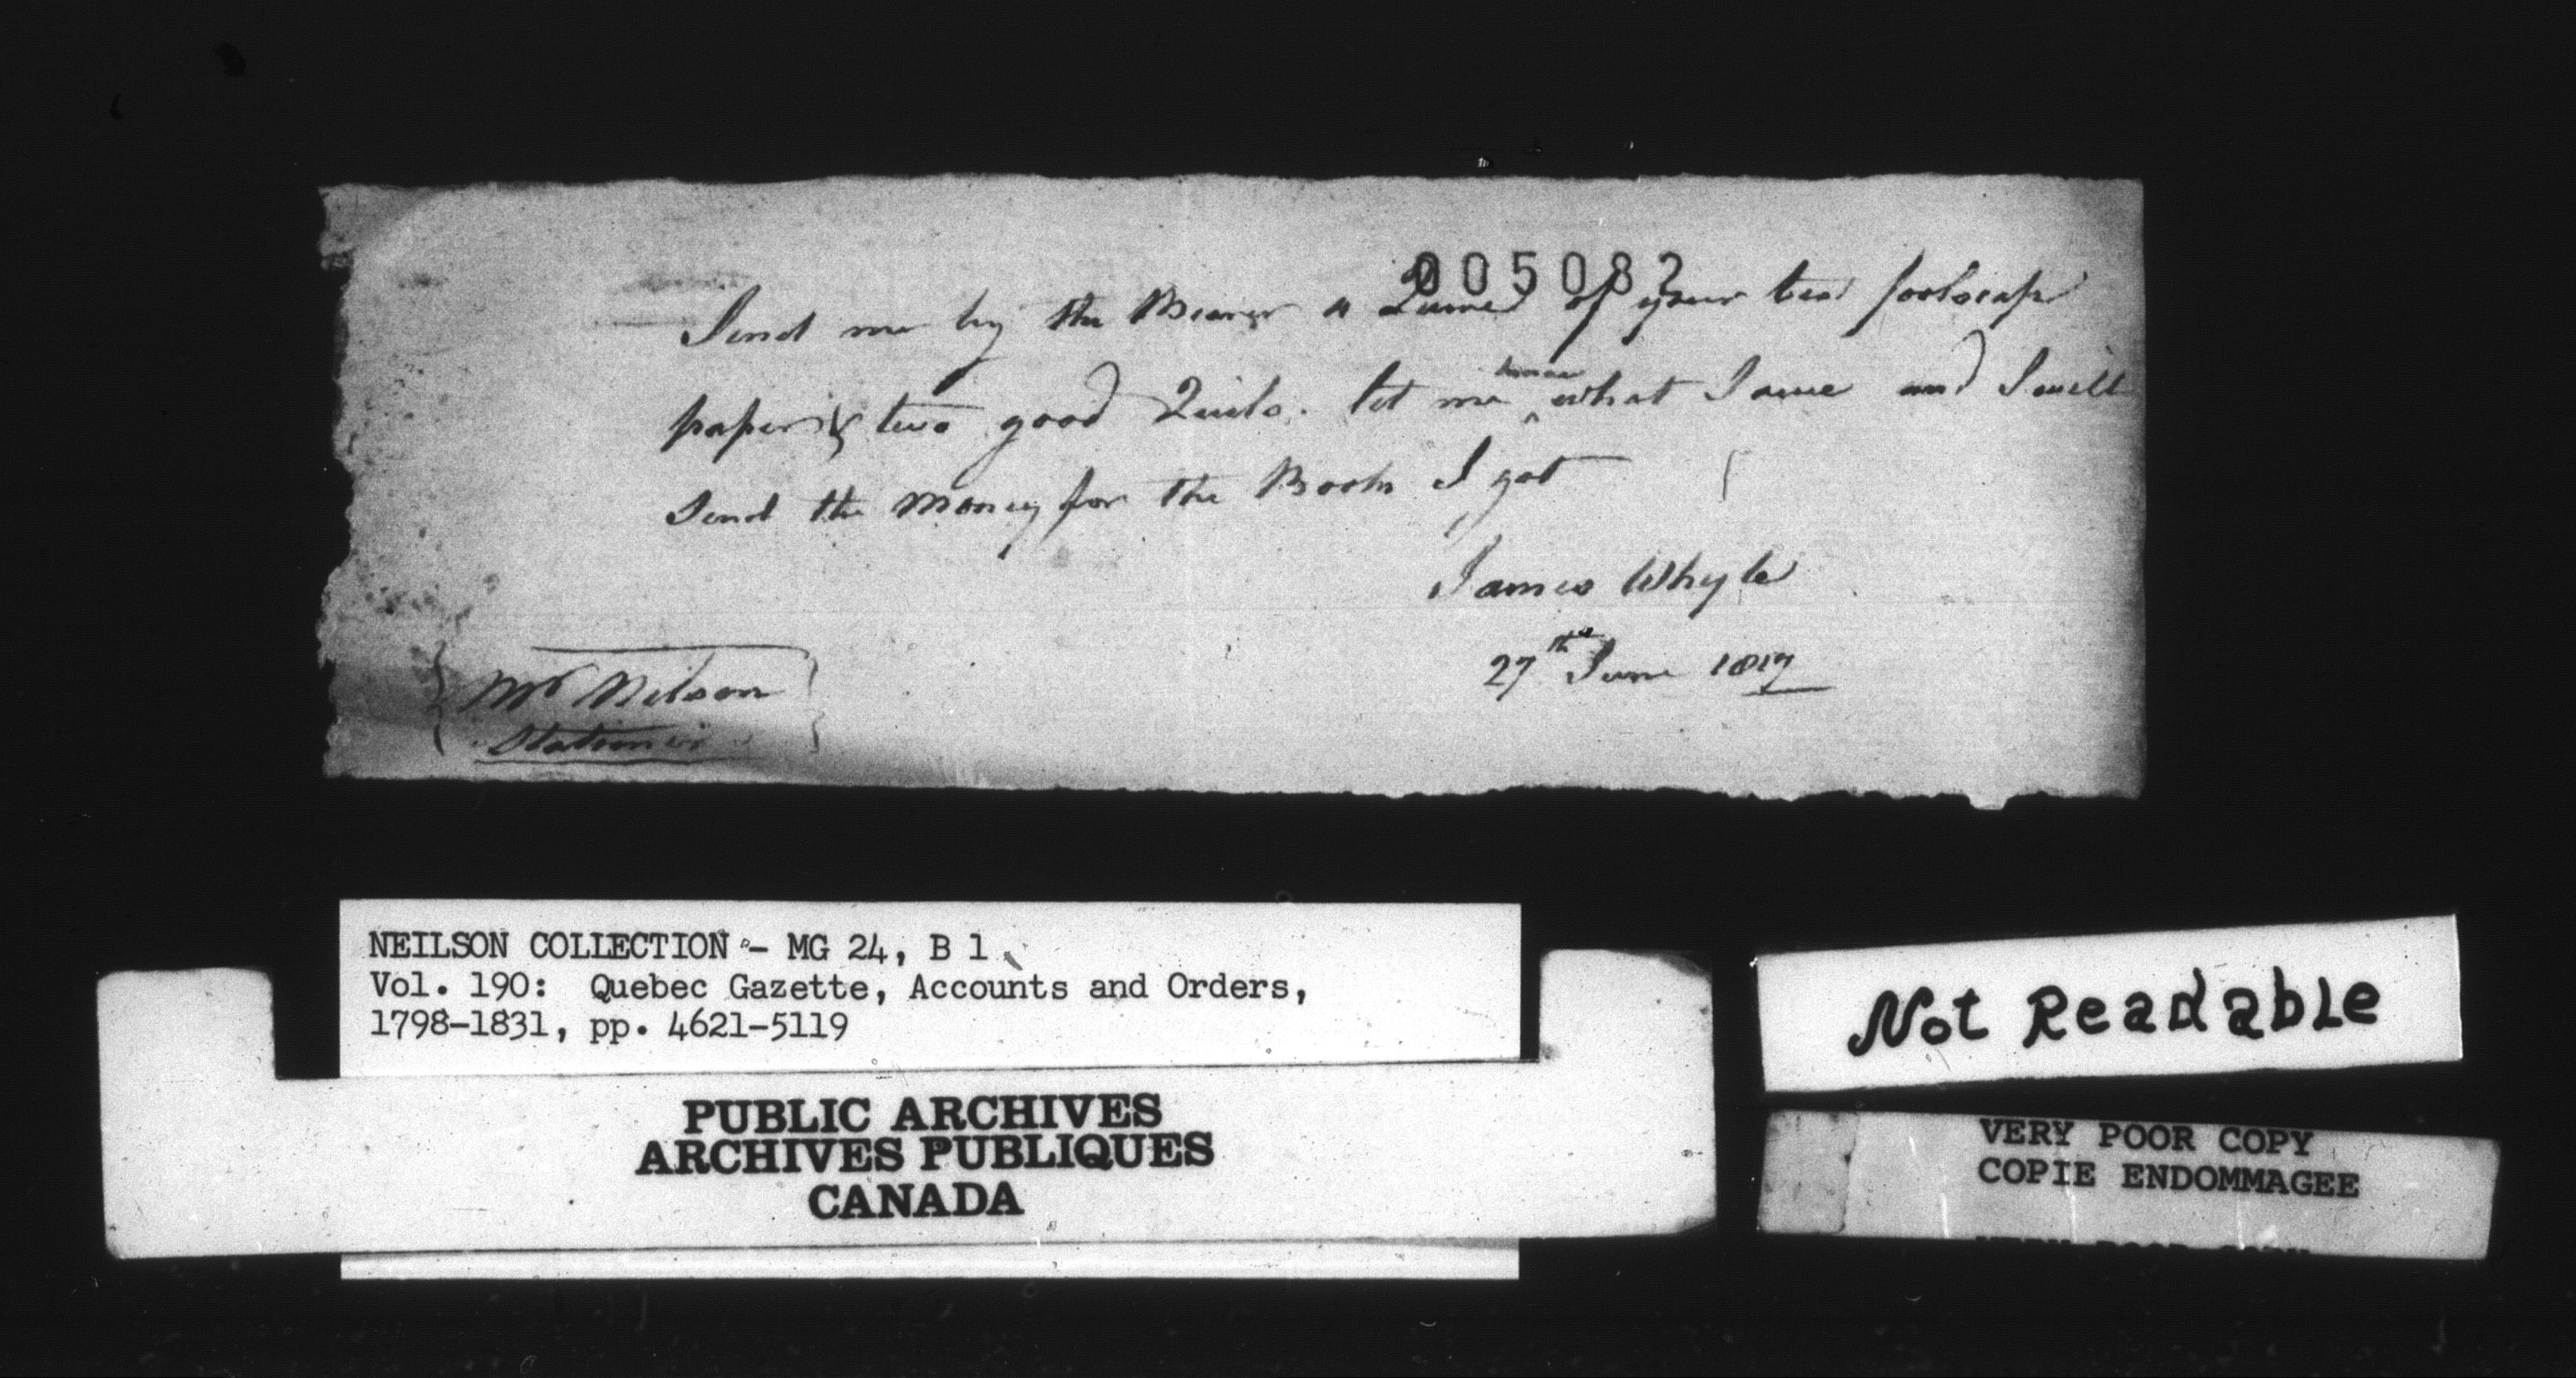 005082
Send me by the Bearer a of your best foolscap
paper & two good Quils. let me know what I owe and I will
Send the Money for the Books I got
James Whyte
27th June 1817
Mr Neilson
Stationer
NEILSON COLLECTION - MG 24, B 1
Vol. 190: Quebec Gazette, Accounts and Orders,
1798-1831, pp. 4621-5119
PUBLIC ARCHIVES
ARCHIVES PUBLIQUES
CANADA
Not Readable
VERY POOR COPY
COPIE ENDOMMAGEE